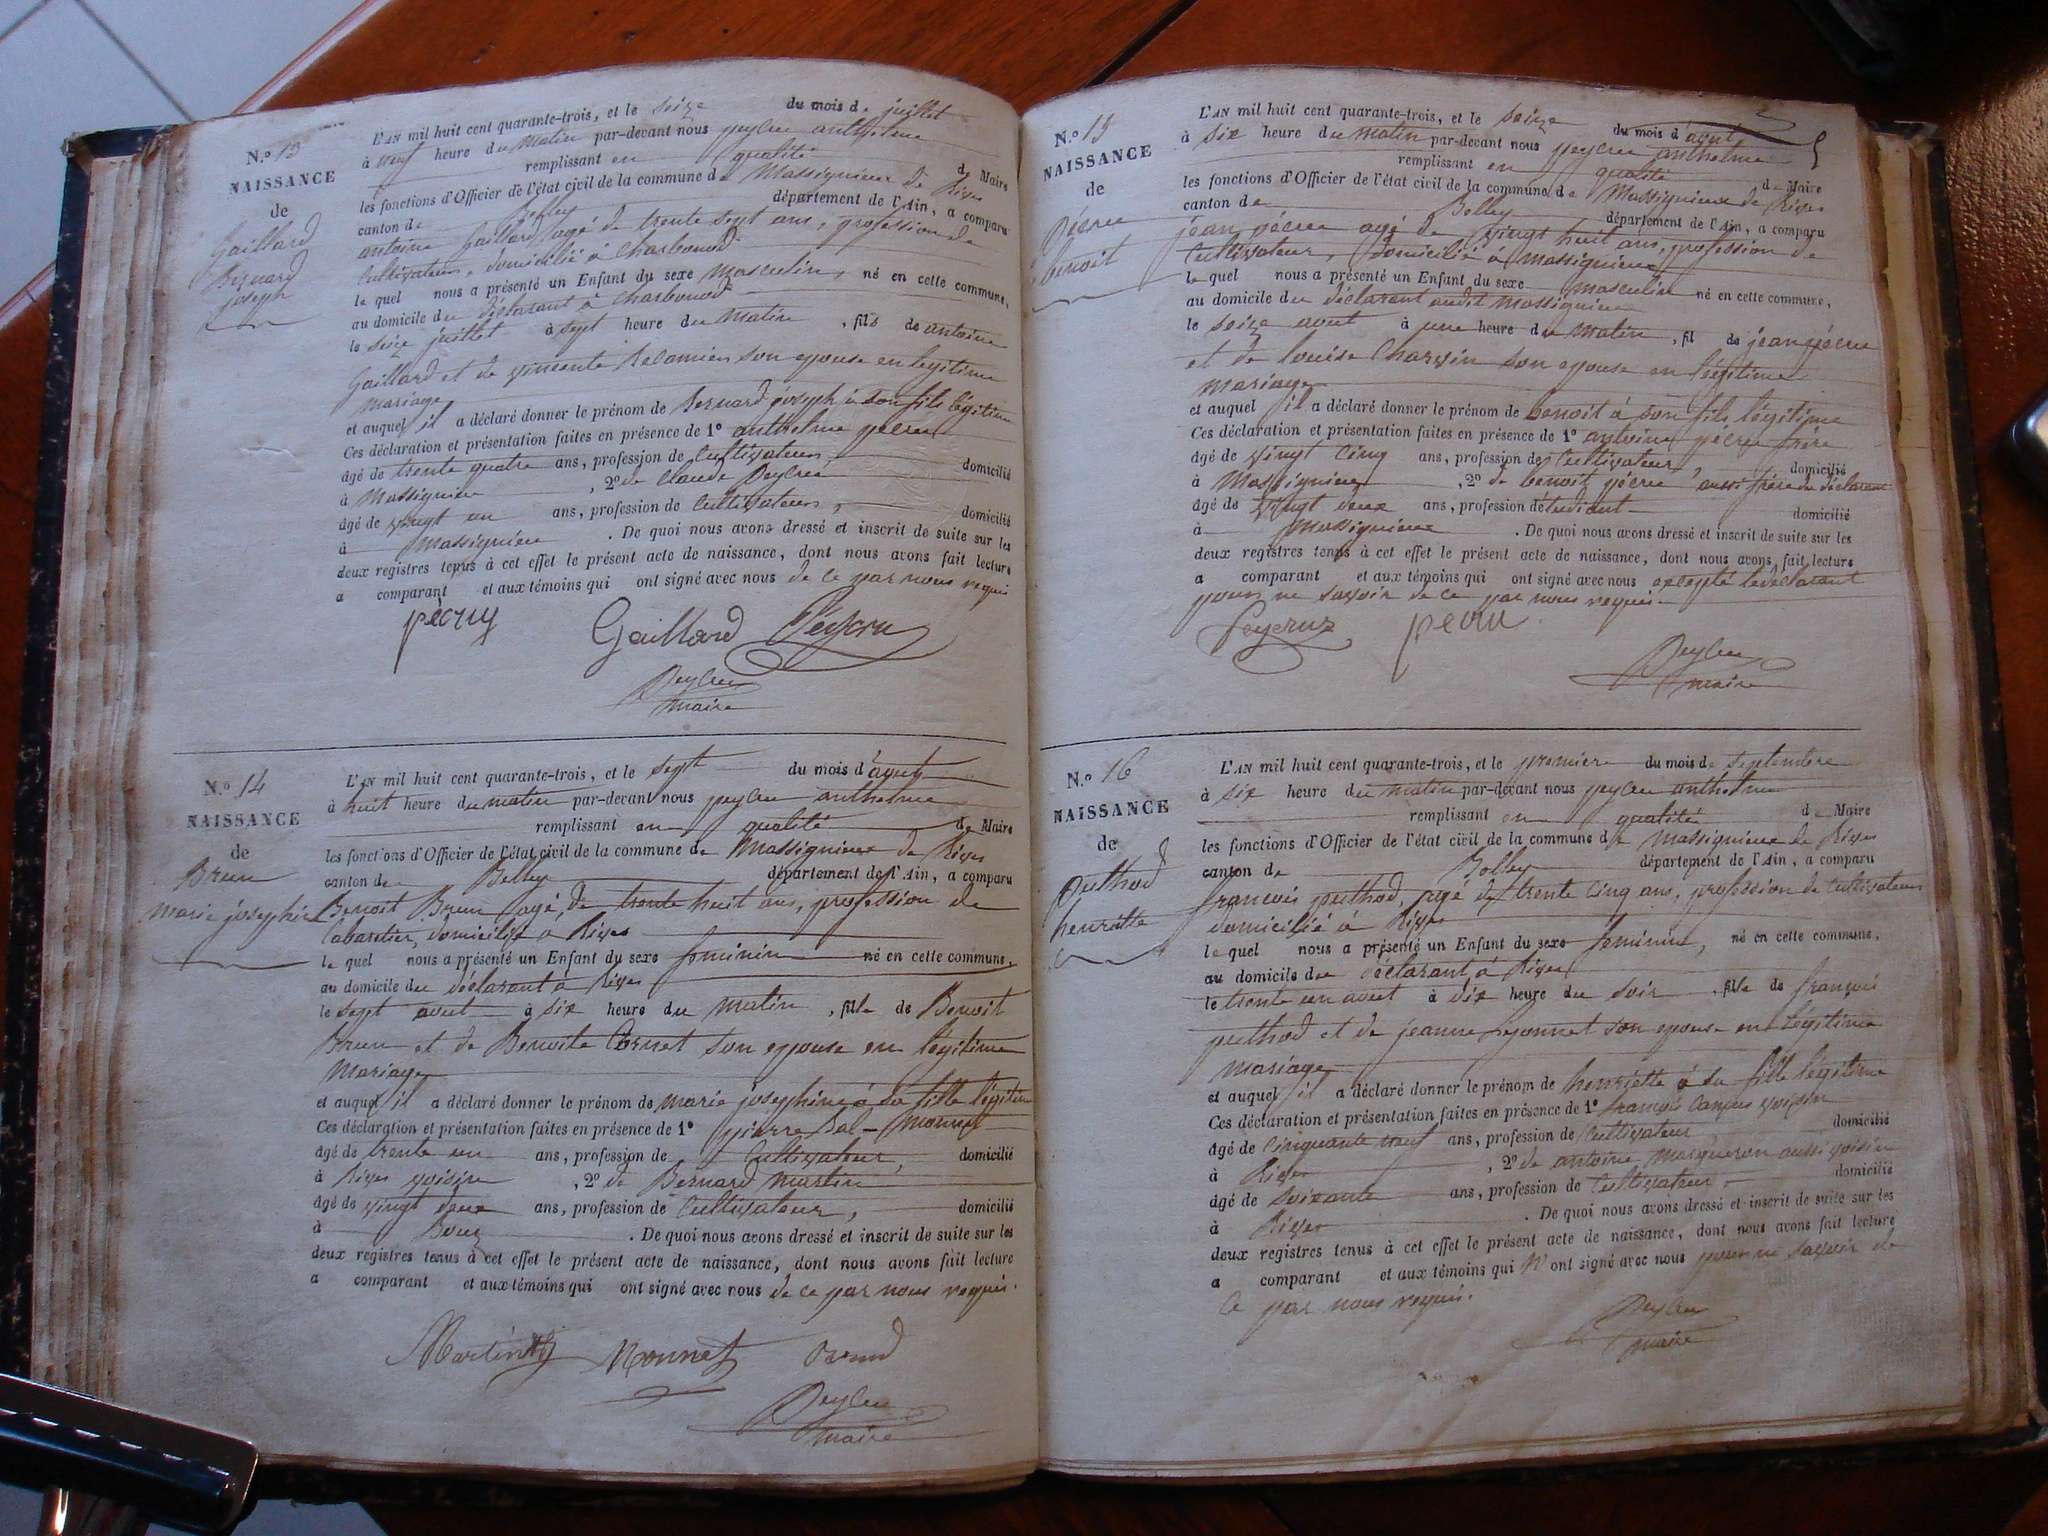 N.º 13
NAISSANCE
de
Gaillard
Bernard
joseph
L'AN mil huit cent quarante-trois, et le seize du mois de juillet
à neuf heure du matin par-devant nous peycru anthelme
remplissant en qualité de Maire
les fonctions d'Officier de l'état civil de la commune de Massignieu de Rives
canton de Belley département de l'Ain, a comparu
antoine Gaillard agé de trente sept ans, profession de
Cultivateur, domicilié à Charbonod
le quel nous a présenté un Enfant du sexe masculin, né en cette commune,
au domicile du déclarant à Charbonod
le seize juillet à sept heure du matin, fils de antoine
Gaillard et de vincente Recamier son epouse en legitime
mariage
et auquel il a déclaré donner le prénom de Bernard joseph à son fils légitime
Ces déclaration et présentation faites en présence de 1º anthelme pécru
âgé de trente quatre ans, profession de Cultivateur domicilié
à Massignieu, 2º de claude Peycru
âgé de vingt un ans, profession de Cultivateur, domicilié
à Massignieu. De quoi nous avons dressé et inscrit de suite sur les
deux registres tenus à cet effet le présent acte de naissance, dont nous avons fait lecture
a comparant et aux témoins qui ont signé avec nous de ce par nous requis
Gaillard Peycru
Peycru
maire
N.º 14
NAISSANCE
de
Brun
marie josephine
L'AN mil huit cent quarante-trois, et le sept du mois d'aout
à huit heure du matin par-devant nous peycru anthelme
remplissant en qualité de Maire
les fonctions d'Officier de l'état civil de la commune de Massignieu de Rives
canton de Belley département de l'Ain, a comparu
Benoit Brun agé de trente huit ans, profession de
Cabaretier, domicilié a Rives
le quel nous a présenté un Enfant du sexe feminin né en cette commune,
au domicile du déclarant à Rives
le sept aout à six heure du matin, fille de Benoit
Brun et de Benoite Cornet son epouse en légitime
mariage
et auquel il a déclaré donner le prénom de marie josephine à sa fille légitime
Ces déclaration et présentation faites en présence de 1º pierre Bal-monnet
âgé de trente un ans, profession de Cultivateur, domicilié
à Rives voisin, 2º de Bernard martin
âgé de vingt deux ans, profession de Cultivateur, domicilié
à. De quoi nous avons dressé et inscrit de suite sur les
deux registres tenus à cet effet le présent acte de naissance, dont nous avons fait lecture
a comparant et aux témoins qui ont signé avec nous de ce par nous requis.
Martin Monnet
Peycru
maire
N.º 15
NAISSANCE
de
Pécru
benoit
L'AN mil huit cent quarante-trois, et le seize du mois d'aout
à six heure du matin par-devant nous peycru anthelme
remplissant en qualité de Maire
les fonctions d'Officier de l'état civil de la commune de Massignieu de Rives
canton de Belley département de l'Ain, a comparu
jean pécru agé de vingt huit ans, profession de
Cultivateur, domicilié à massignieu
le quel nous a présenté un Enfant du sexe masculin né en cette commune,
au domicile du déclarant audit massignieu
le seize aout à une heure du matin, fil de jean pécru
et de louise Charvin son epouse en légitime
mariage
et auquel il a déclaré donner le prénom de benoit à son fils légitime
Ces déclaration et présentation faites en présence de 1º antoine pécru frère
âgé de vingt cinq ans, profession de Cultivateur, domicilié
à Massignieu, 2º de benoit pécru aussi frère du déclarant
âgé de vingt deux ans, profession d'étudiant domicilié
à massignieu. De quoi nous avons dressé et inscrit de suite sur les
deux registres tenus à cet effet le présent acte de naissance, dont nous avons fait lecture
a comparant et aux témoins qui ont signé avec nous excepté le déclarant
pour ne savoir de ce par nous requis
pecru
Peycru
maire
N.º 16
NAISSANCE
de
Puthod
henriette
L'AN mil huit cent quarante-trois, et le premier du mois de septembre
à six heure du matin par-devant nous peycru anthelme
remplissant en qualité de Maire
les fonctions d'Officier de l'état civil de la commune de massignieu de Rives
canton de Belley département de l'Ain, a comparu
francois puthod, agé de trente Cinq ans, profession de Cultivateur
domicilié à Rives
le quel nous a présenté un Enfant du sexe feminin, né en cette commune,
au domicile du déclarant à Rives
le trente un aout à six heure du soir, fille de françois
puthod et de jeanne son epouse en légitime
mariage
et auquel il a déclaré donner le prénom de henriette à sa fille légitime
Ces déclaration et présentation faites en présence de 1º françois voisin
âgé de Cinquante neuf ans, profession de Cultivateur domicilié
à Rives, 2º de antoine aussi voisin
âgé de soixante ans, profession de Cultivateur domicilié
à Rives. De quoi nous avons dressé et inscrit de suite sur les
deux registres tenus à cet effet le présent acte de naissance, dont nous avons fait lecture
a comparant et aux témoins qui n'ont signé avec nous pour ne savoir de
ce par nous requis.
Peycru
maire